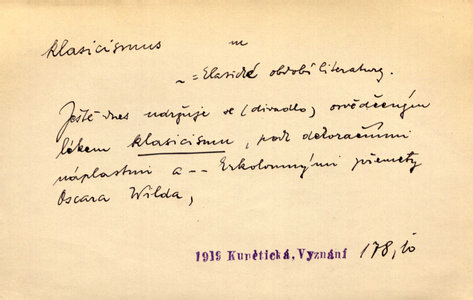 klasicismus m
~ = klasické období literatury.
Ještě dnes udržuje se (divadlo) osvědčeným
lékem klasicismu, pod dekoračními
náplastmi a -- krkolomnými přemety
Oscara Wilda,
1919 Kunětická, Vyznání 178, 10